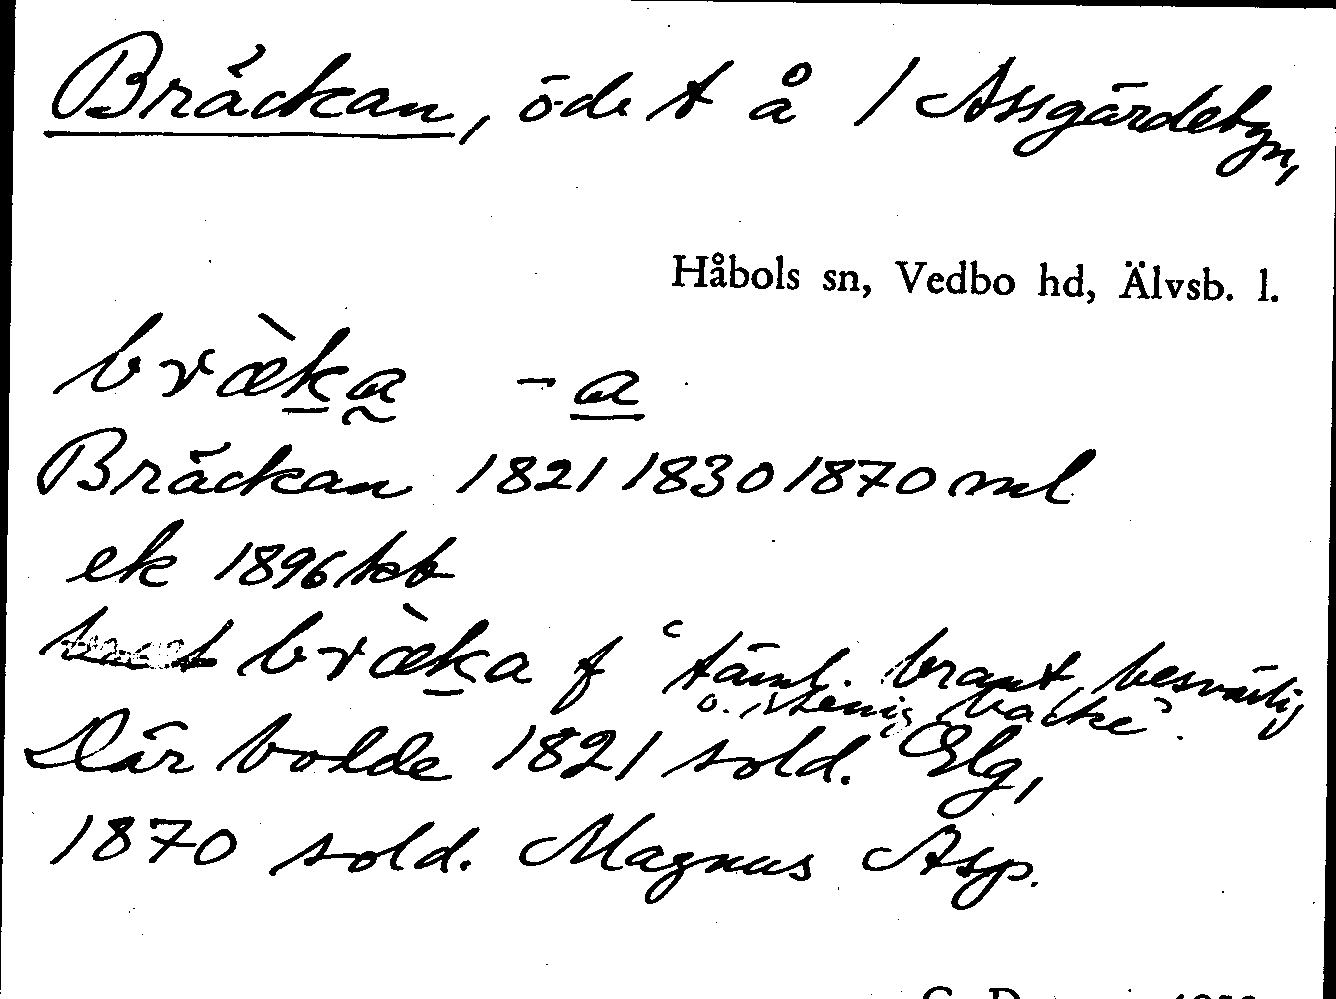 Bräckan, öde t å 1 Assgärdebyn,
Håbols sn, Vedbo hd, Älvsb. l.
bræ̀ka -a
Bräckan 1821 1830 1870 ml
ek 1896 kb
bræ̀ka f "täml. brant, besvärlig
o. stenig backe".
Där bodde 1821 sold. Elg,
1870 sold. Magnus Asp.